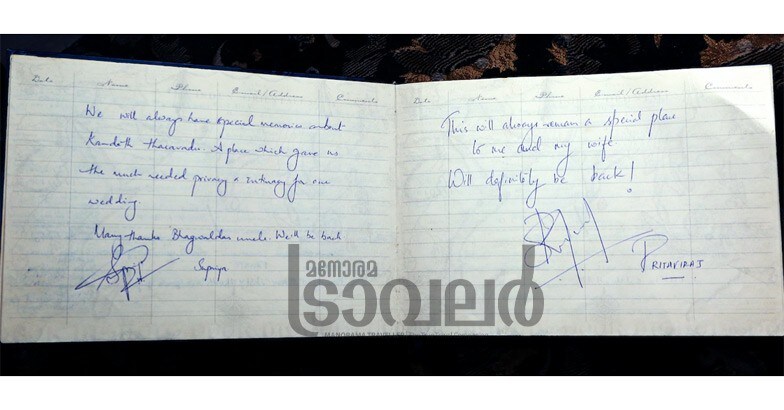 Date Name Phone Email/Address Comments
We will always have special memories about
Kandath tharavadu. A place which gave us
the much needed privacy & intimacy for our
wedding.
Many thanks Bhagwaldas uncle. We'll be back
Supriya
Date Name Phone Email/Address Comments
This will always remain a special place
to me and my wife
Will definitely be back!
PRITHVIRAJ
മനോരമ
ട്രാവലർ
MANORAMA TRAVELLER